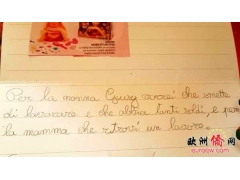 Per la nonna Giusy vorrei che smetta
di lavorare e che abbia tanti soldi, e per
la mamma che ritrovi un lavoro.
欧洲侨网
eursow.com